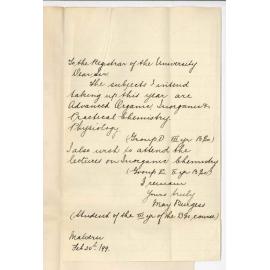 To the Registrar of the University
Dear Sir
The subjects I intend
taking up this year are
Advanced Organic, Inorganic &
Practical Chemistry.
Physiology
(Group D III yr. B.Sc.)
I also wish to attend the
lectures on Inorganic Chemistry
(Group II yr B.Sc.)
I remain
Yours truly
May Burgess
(Student of the III yr of the B.Sc. course)
Malvern
Feb 20th /99.